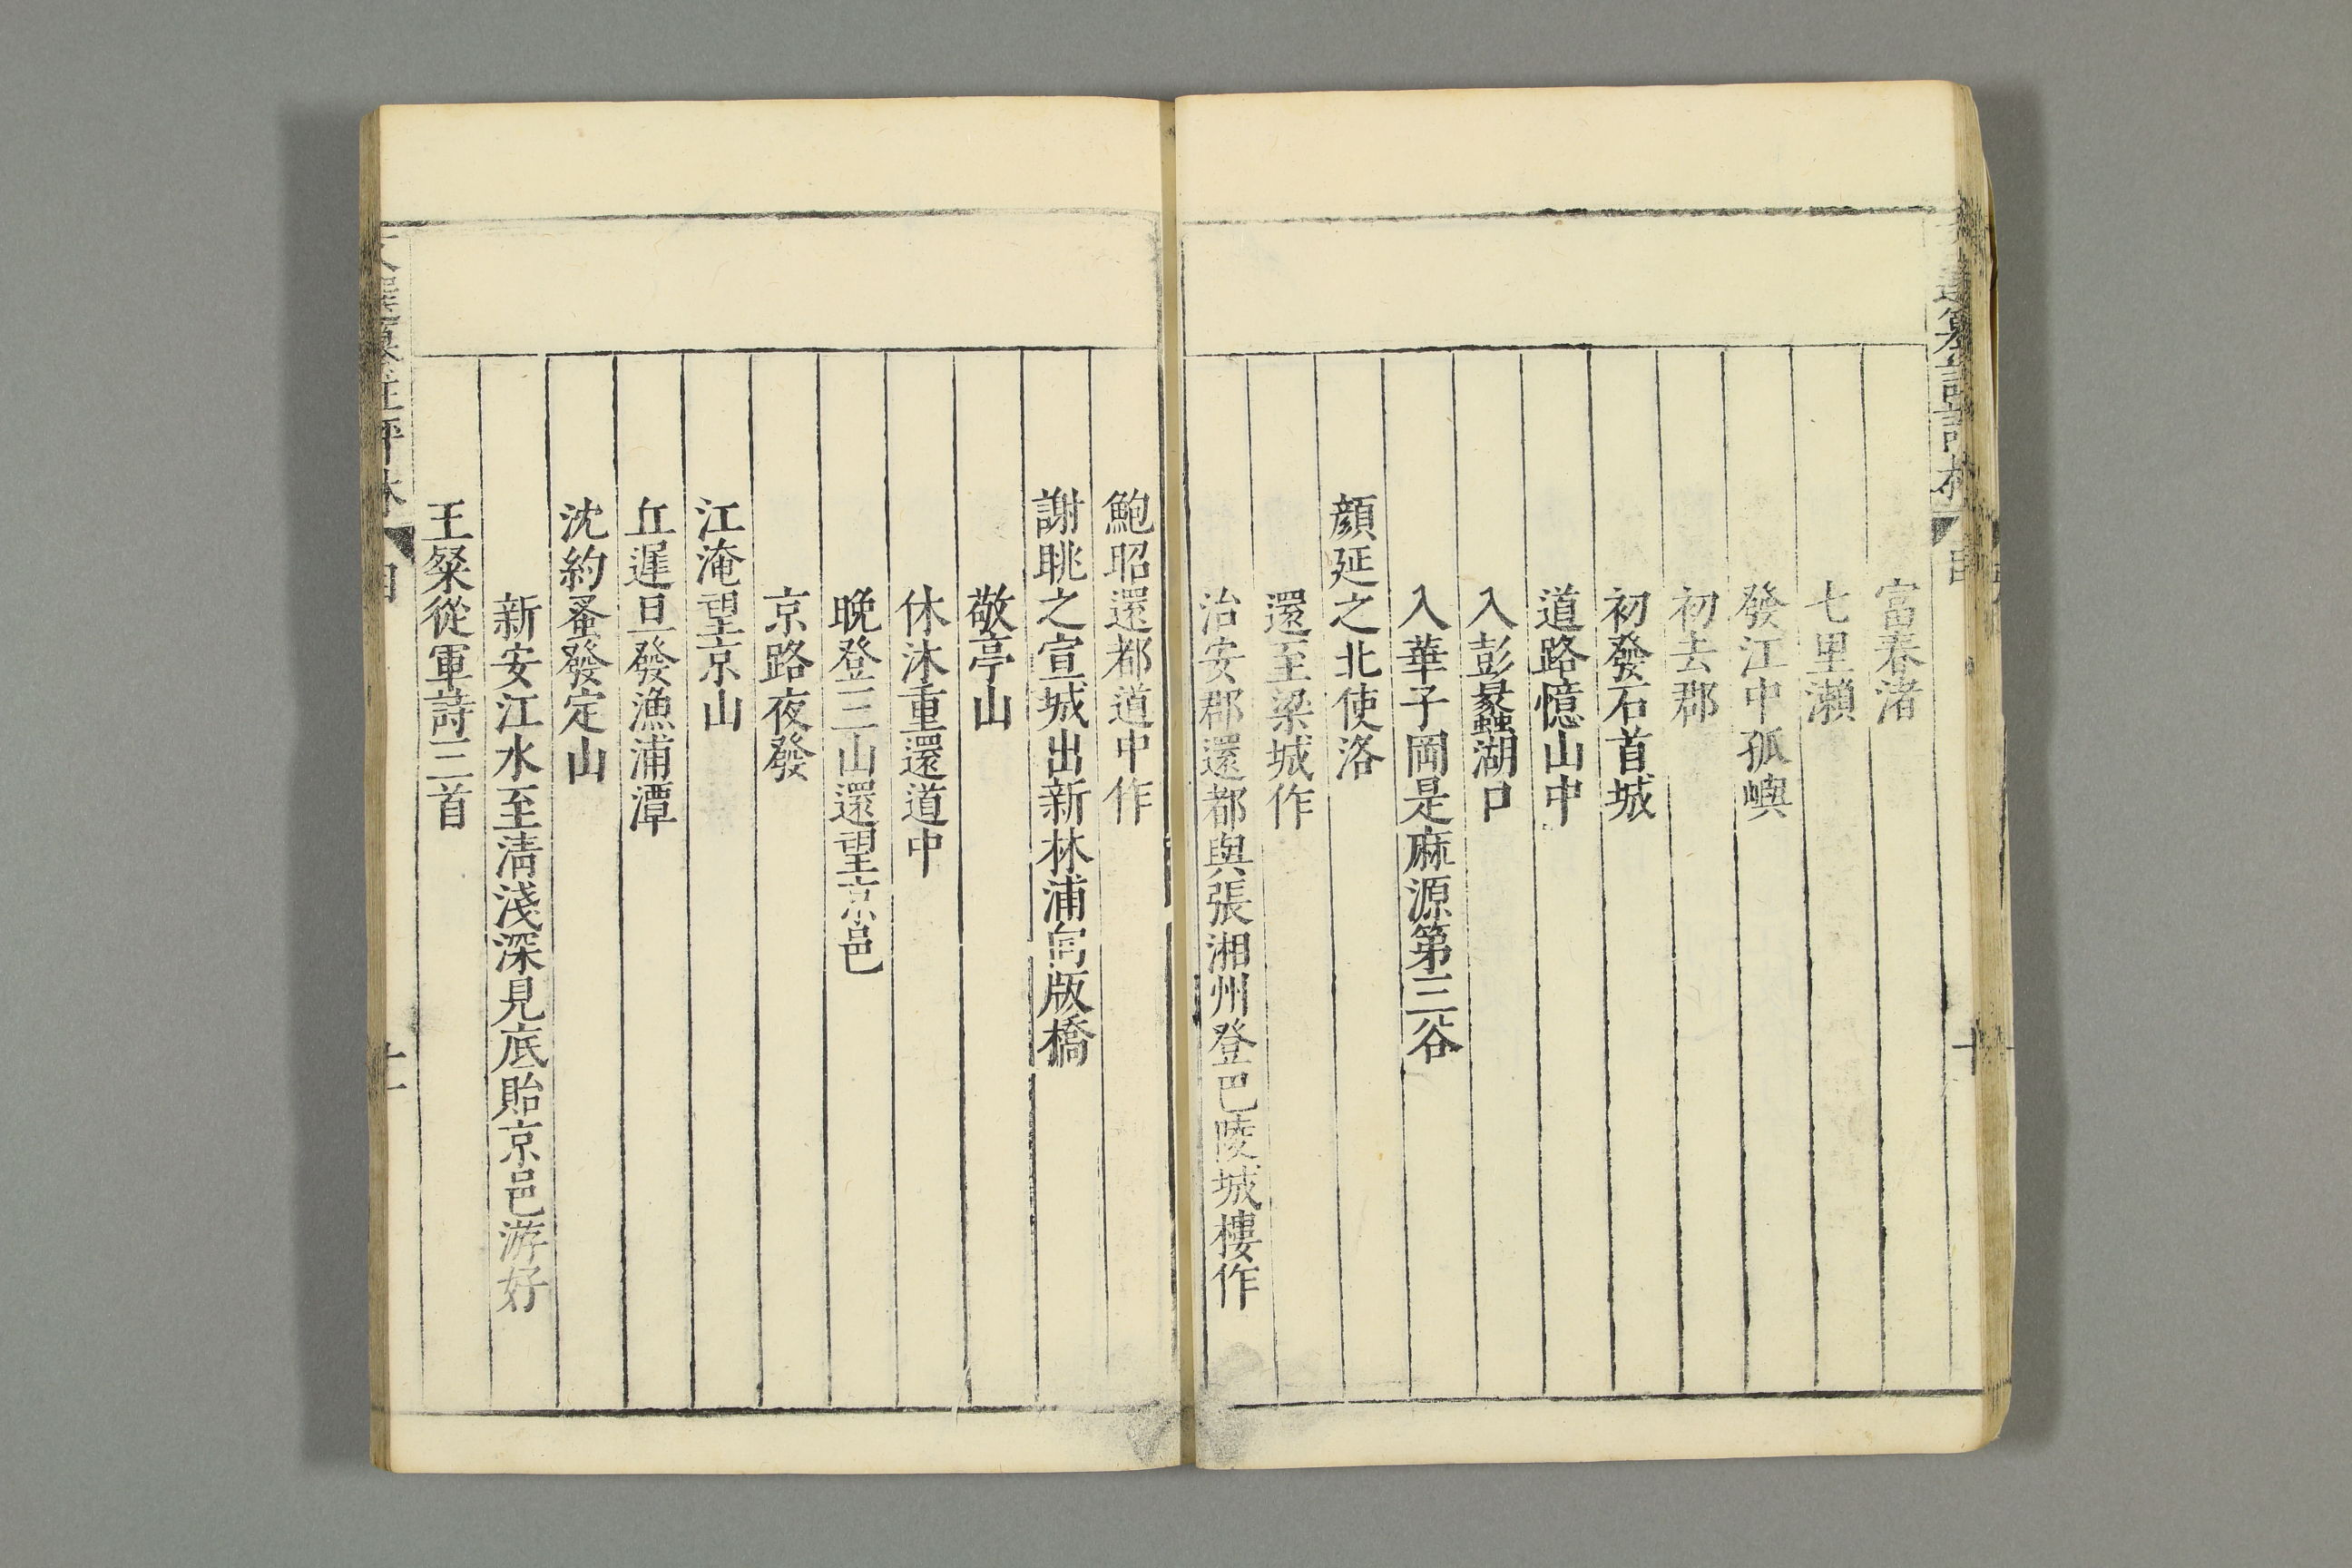 富春渚
七里瀨
發江中孤嶼
初去郡
初發石首城
道路憶山中
入彭蠡湖口
入華子岡是麻源第三谷
顏延之北使洛
還至梁城作
治安郡還都與張湘州登巴陵城樓作
鮑昭還都道中作
謝眺之宣城出新林浦向版橋
敬亭山
休沐重還道中
晚登三山還望京邑
京路夜發
江淹望京山
丘遲旦發漁浦潭
沈約蚤發定山
新安江水至清淺深見底貽京邑游好
王粲從軍詩三首